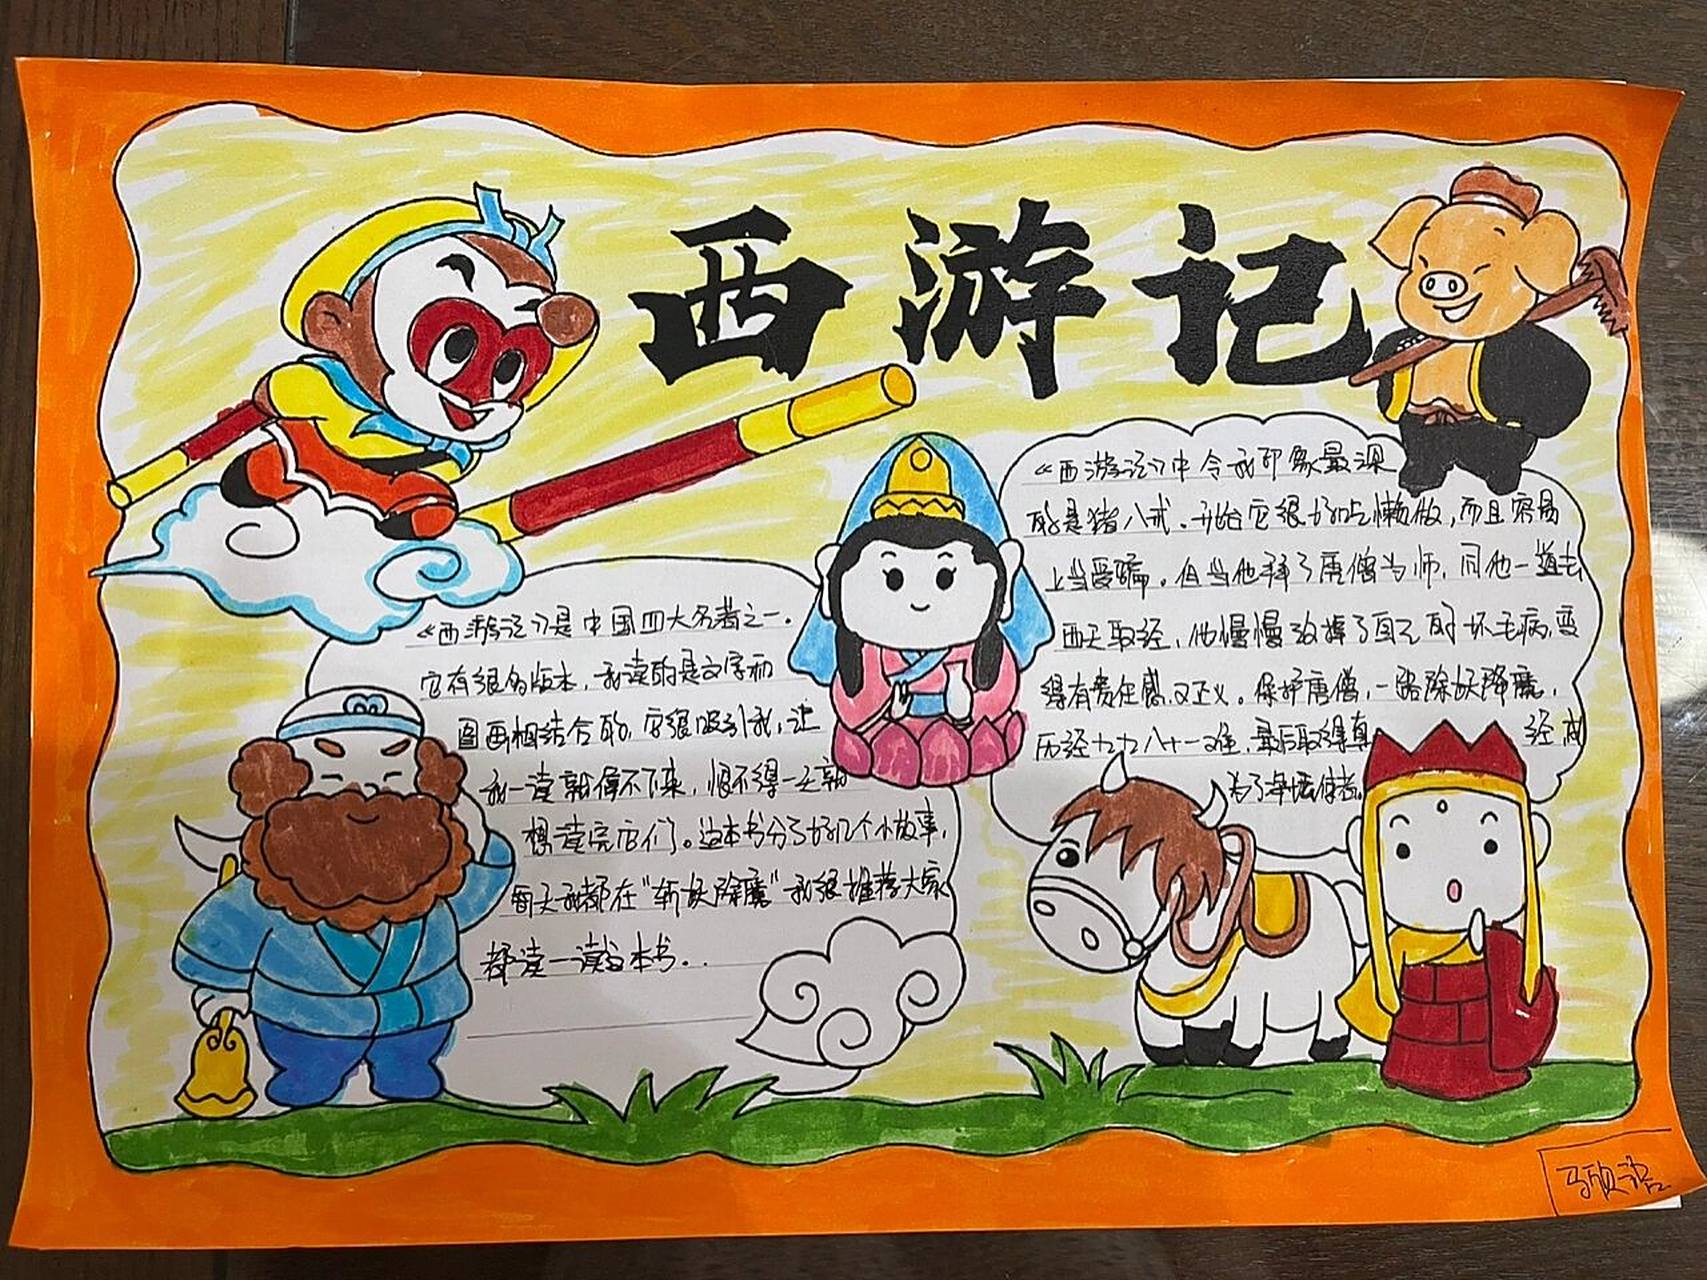 西游记
《西游记》是中国四大名著之一.
它有很多版本,我读的是文字和
图画相结合的,它很吸引我,让
我一读就停不下来,恨不得一天就
想读完它们。这本书分了好几个小故事,
每天我都在"斩妖除魔"我很推荐大家
都读一读这本书..
《西游记》中令我印象最深
的是猪八戒.开始它很好吃懒做,而且容易
上当受骗。但当他拜了唐僧为师,同他一道去
西天取经,他慢慢改掉了自己的坏毛病,变
得有责任感,又正义。保护唐僧,一路除妖降魔,
历经九九八十一难,最后取得真经成
为了净坛使者.
马欣语